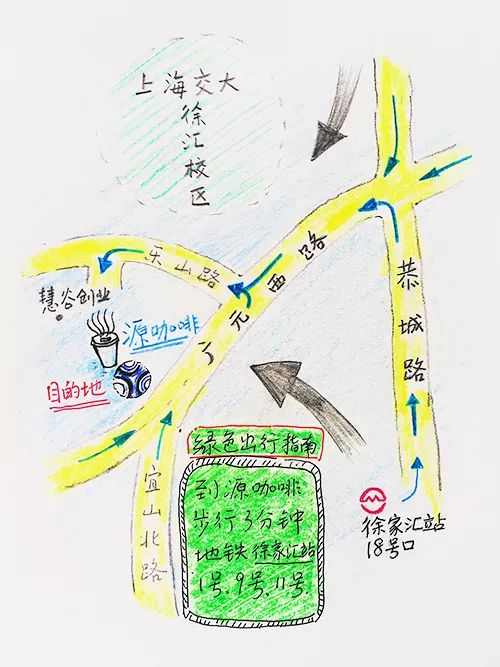 上海交大
徐
汇
校
区
乐山路
广元西路
恭
城
路
慧谷创业
源咖啡
目的地
宜
山
北
路
绿色出行指南
到源咖啡
步行3分钟
地铁徐家汇站
1号.9号.11号
徐家汇站
18号口